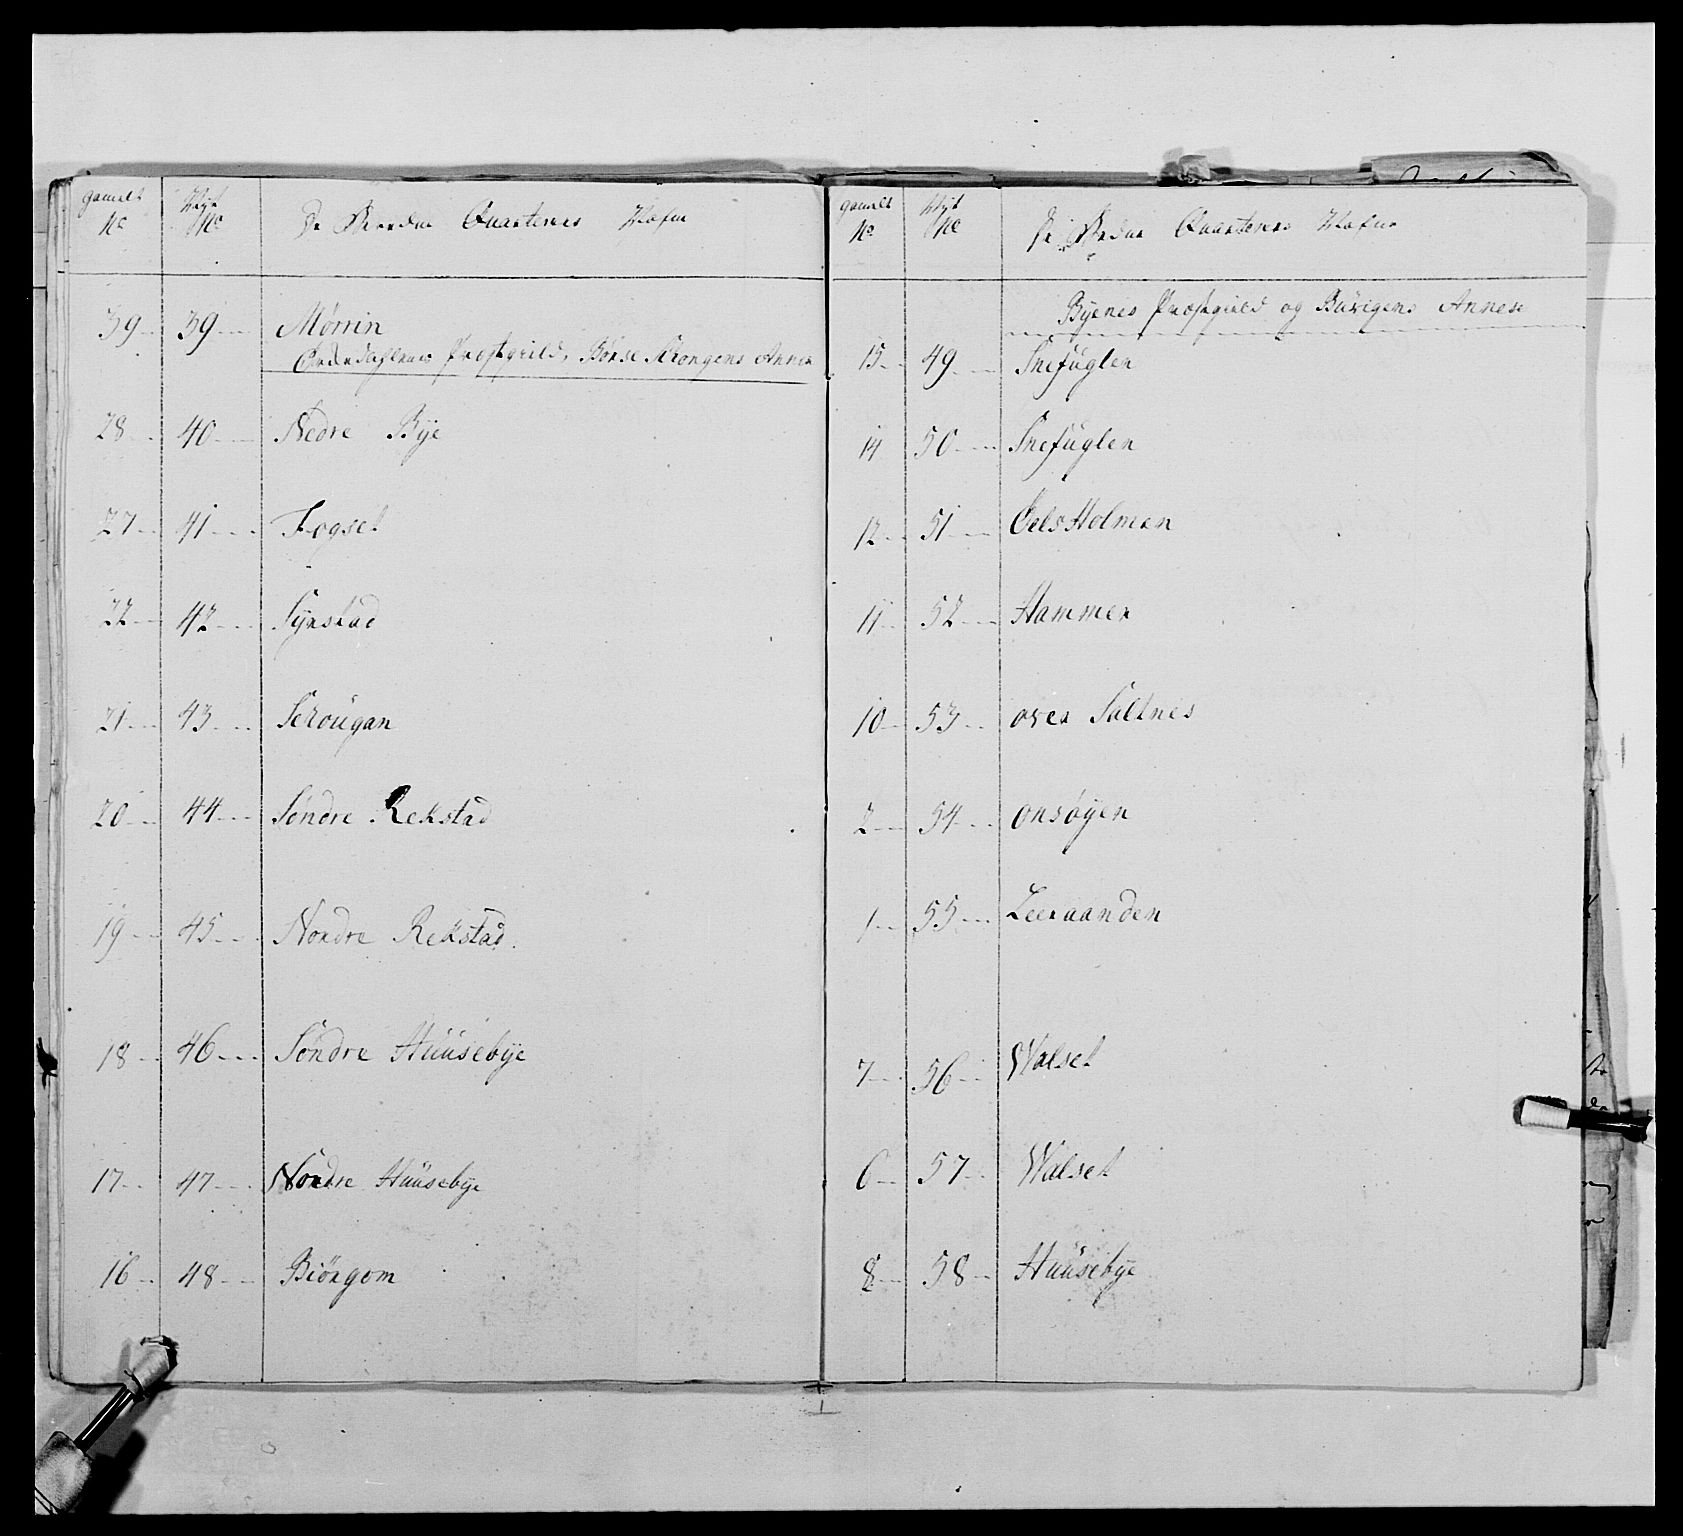 gamelt Nyt
No No De Beordrede Quarterers Nafne
39 39 Mørrin
Ørkedahlens Præstegield, Børse Skongens Annex
28 40 Nedre Bÿe
27 41 Fogset
22 42 Sÿrstad
21 43 Schougan
20 44 Søndre Rekstad
19 45 Nordre Rekstad.
18 46 Søndre Huusebÿe
17 47 Nordre Huusebÿe
16 48 Biörgom
gamelt Nyt
No No Quarterers Nafne
Bÿenes Præstegield og Buvigens Annese
15 49 Snefuglen
14 50 Snefuglen
12 51 Oels Holmen
11 52 Hammer
10 53 over Saltnes
2 54 onsøÿen
1 55 Leeraanden
7 56 Walset
6 57 Walset
8 58 Huusebÿe